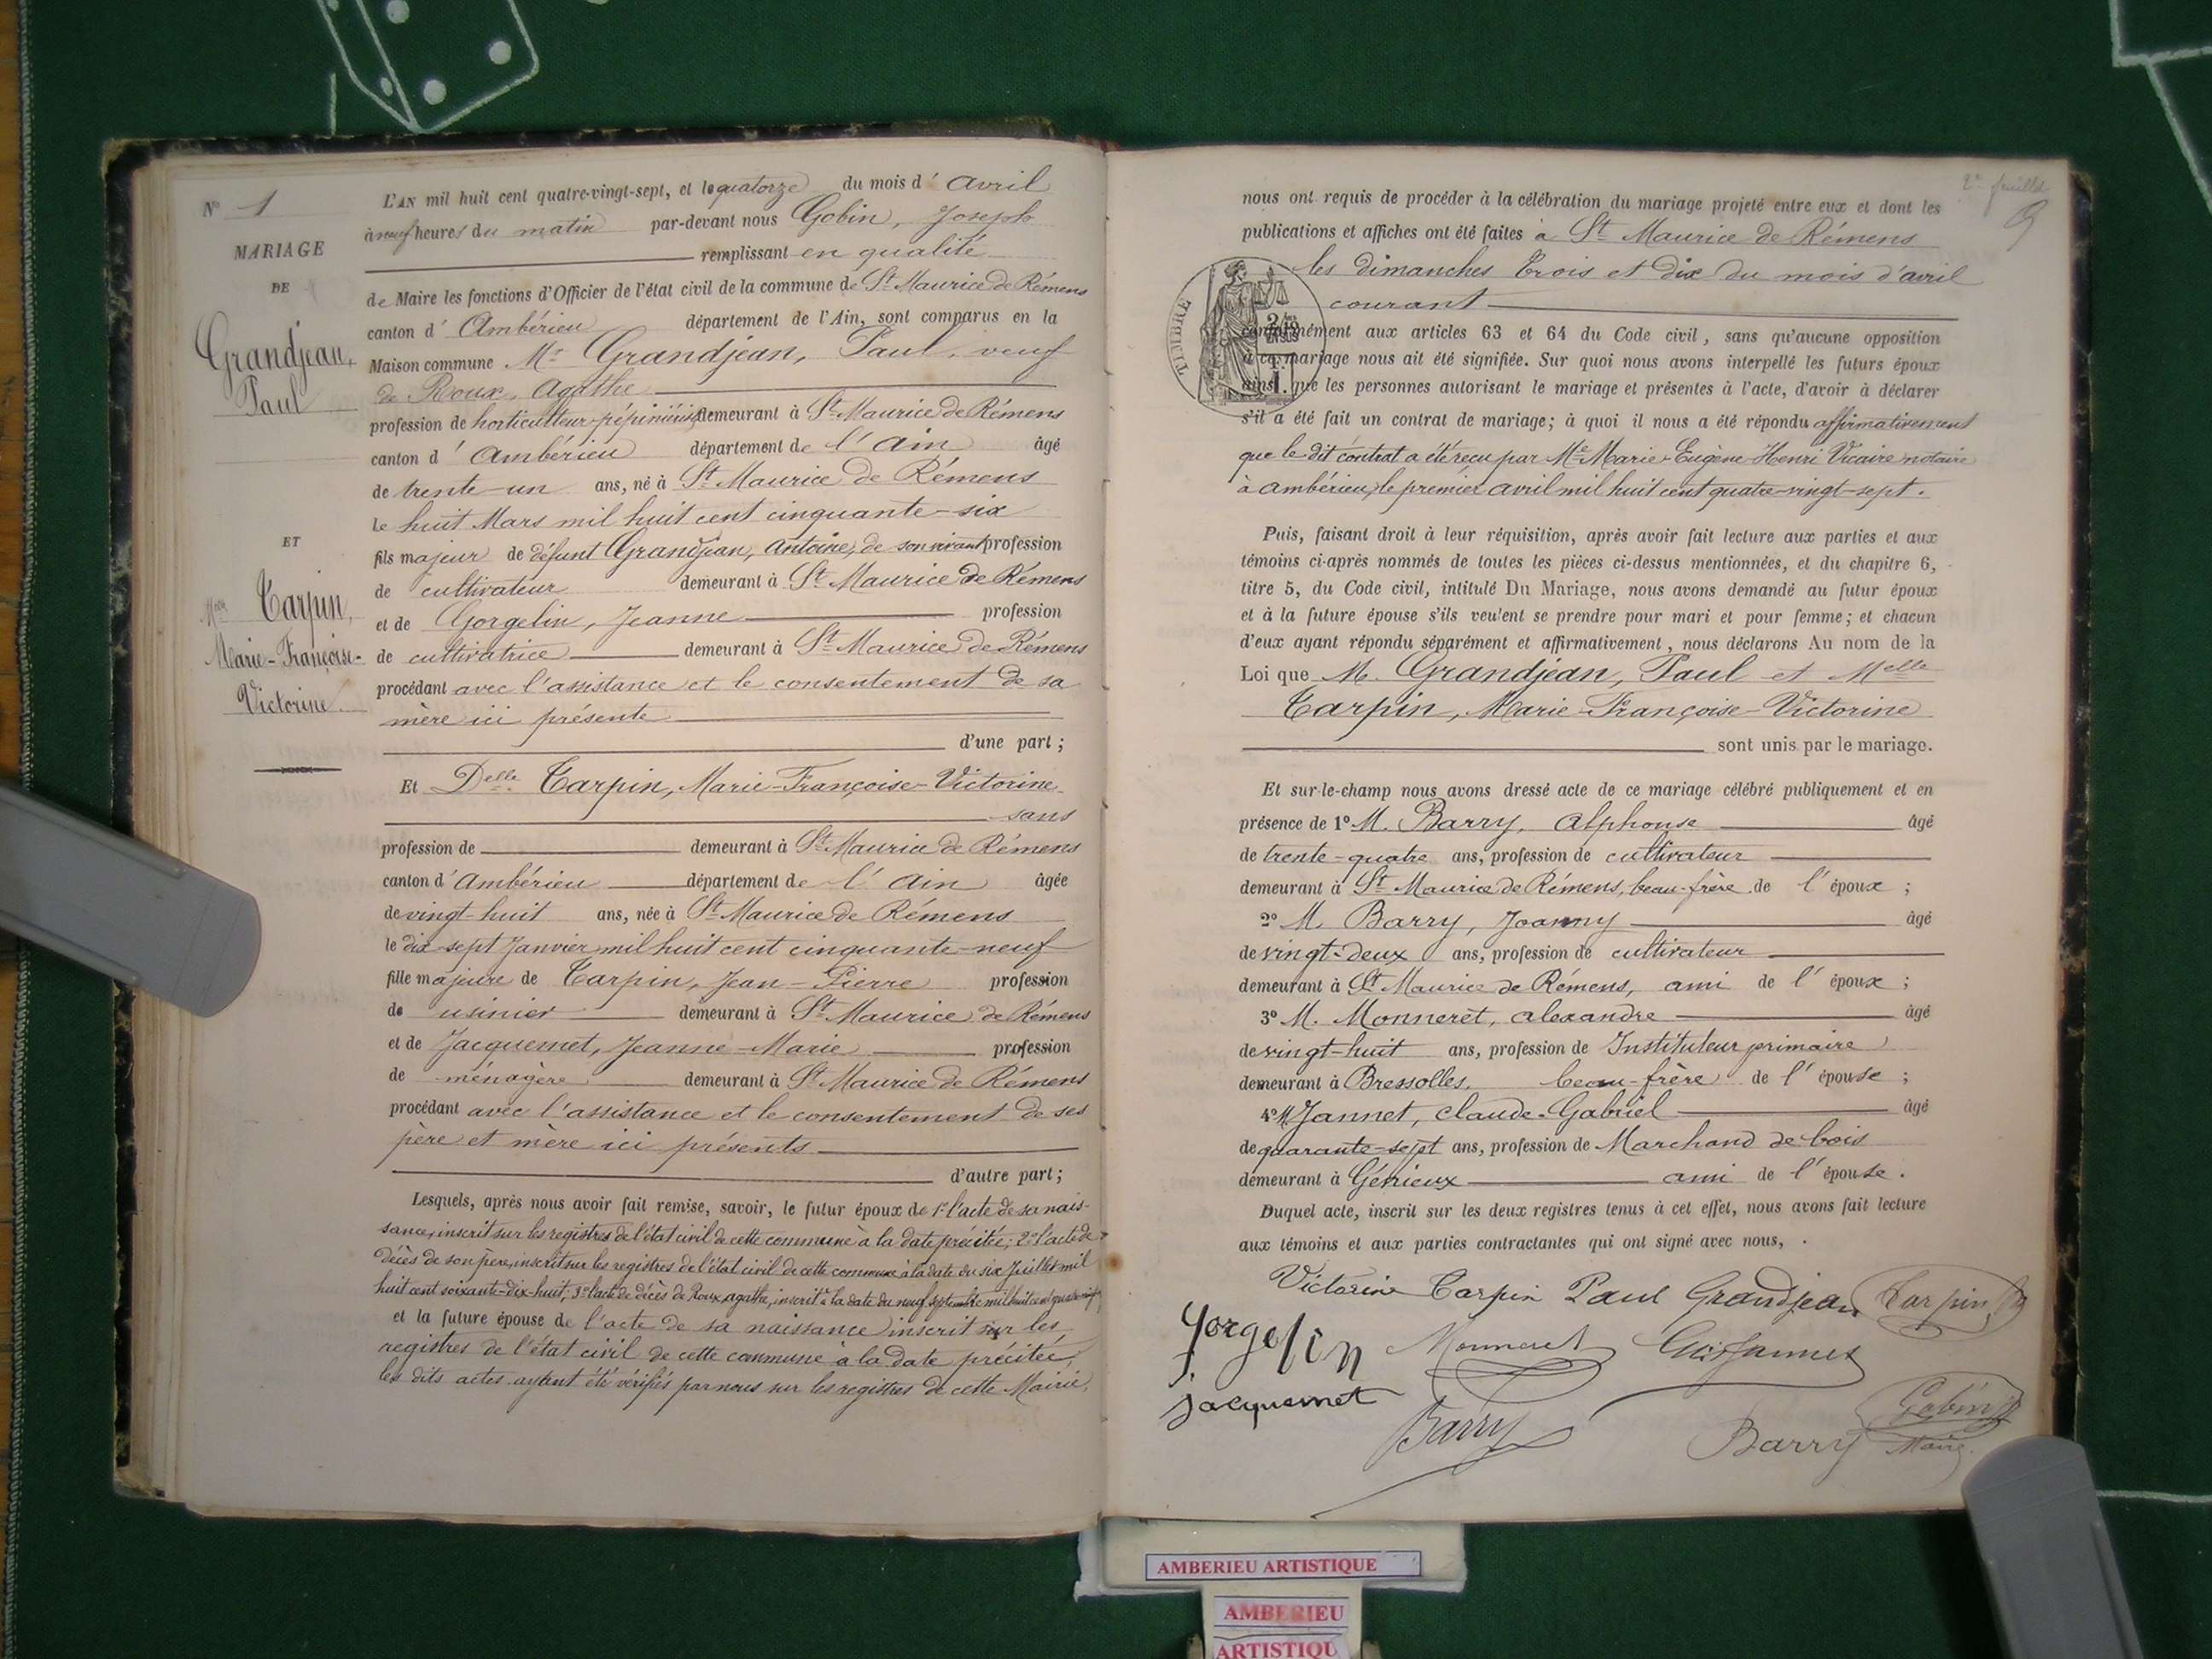 N° 1
MARIAGE
DE
Grandjean,
Paul
ET
Melle Tarpin,
Marie-Françoise-
Victorine.
L'AN mil huit cent quatre-vingt-sept, et le quatorze du mois d'avril
à neuf heures du matin par-devant nous Gobin, Joseph
remplissant en qualité
de Maire les fonctions d'Officier de l'état civil de la commune de St Maurice de Rémens
canton d'Ambérieu département de l'Ain, sont comparus en la
Maison commune Mr Grandjean, Paul, veuf
de Roux, Agathe
profession de horticulteur-pépiniériste demeurant à St Maurice de Rémens
canton d'Ambérieu département de l'Ain âgé
de trente-un ans, né à St Maurice de Rémens
le huit Mars mil huit cent cinquante-six
fils majeur de défunt Grandjean, Antoine, de son vivant profession
de cultivateur demeurant à St Maurice de Rémens
et de Gorgelin, Jeanne profession
de cultivatrice demeurant à St Maurice de Rémens
procédant avec l'assistance et le consentement de sa
mère ici présente
d'une part ;
Et Delle Tarpin, Marie-Françoise-Victorine
sans
profession de demeurant à St Maurice de Rémens
canton d'Ambérieu département de l'Ain âgée
de vingt-huit ans, née à St Maurice de Rémens
le dix-sept Janvier mil huit cent cinquante-neuf
fille majeure de Tarpin, Jean-Pierre profession
de usinier demeurant à St Maurice de Rémens
et de Jacquemet, Jeanne-Marie profession
de ménagère demeurant à St Maurice de Rémens
procédant avec l'assistance et le consentement de ses
père et mère ici présents
d'autre part ;
Lesquels, après nous avoir fait remise, savoir, le futur époux de 1° l'acte de sa nais-
sance, inscrit sur les registres de l'état civil de cette commune à la date précitée; 2° l'acte de
décès de son père, inscrit sur les registres de l'état civil de cette commune à la date du six Juillet mil
huit cent soixante-dix-huit; 3° l'acte de décès de Roux, agathe, inscrit à la date du neuf septembre mil huit cent
et la future épouse de l'acte de sa naissance inscrit sur les
registres de l'état civil de cette commune à la date précitée,
les dits actes ayant été vérifiés par nous sur les registres de cette Mairie,
2e feuillet
nous ont requis de procéder à la célébration du mariage projeté entre eux et dont les
publications et affiches ont été faites à St Maurice de Rémens
les dimanches trois et dix du mois d'avril
courant
TIMBRE
conformément aux articles 63 et 64 du Code civil, sans qu'aucune opposition
à ce mariage nous ait été signifiée. Sur quoi nous avons interpellé les futurs époux
ainsi que les personnes autorisant le mariage et présentes à l'acte, d'avoir à déclarer
s'il a été fait un contrat de mariage; à quoi il nous a été répondu affirmativement
que le dit contrat a été reçu par Me Marie-Eugène-Henri Vicaire notaire
à ambérieu, le premier avril mil huit cent quatre-vingt-sept.
Puis, faisant droit à leur réquisition, après avoir fait lecture aux parties et aux
témoins ci-après nommés de toutes les pièces ci-dessus mentionnées, et du chapitre 6,
titre 5, du Code civil, intitulé Du Mariage, nous avons demandé au futur époux
et à la future épouse s'ils veulent se prendre pour mari et pour femme; et chacun
d'eux ayant répondu séparément et affirmativement, nous déclarons Au nom de la
Loi que M. Grandjean, Paul et Melle
Tarpin, Marie-Françoise-Victorine
sont unis par le mariage.
Et sur-le-champ nous avons dressé acte de ce mariage célébré publiquement et en
présence de 1° M. Barry, Alphonse âgé
de trente-quatre ans, profession de cultivateur
demeurant à St Maurice de Rémens, beau-frère de l'époux ;
2° M. Barry, Joanny âgé
de vingt-deux ans, profession de cultivateur
demeurant à St Maurice de Rémens, ami de l'époux ;
3° M. Monneret, alexandre âgé
de vingt-huit ans, profession de Instituteur primaire
demeurant à Bressolles, beau-frère de l'épouse ;
4° M Jannet, Claude-Gabriel âgé
de quarante-sept ans, profession de Marchand de bois
demeurant à Génieux ami de l'épouse.
Duquel acte, inscrit sur les deux registres tenus à cet effet, nous avons fait lecture
aux témoins et aux parties contractantes qui ont signé avec nous, .
Victorine Tarpin Paul Grandjean Tarpin
gorgelin Monneret Jannet
Jacquemet
Barry Barry Gobin
Maire.
AMBERIEU ARTISTIQUE
AMBERIEU
ARTISTIQU